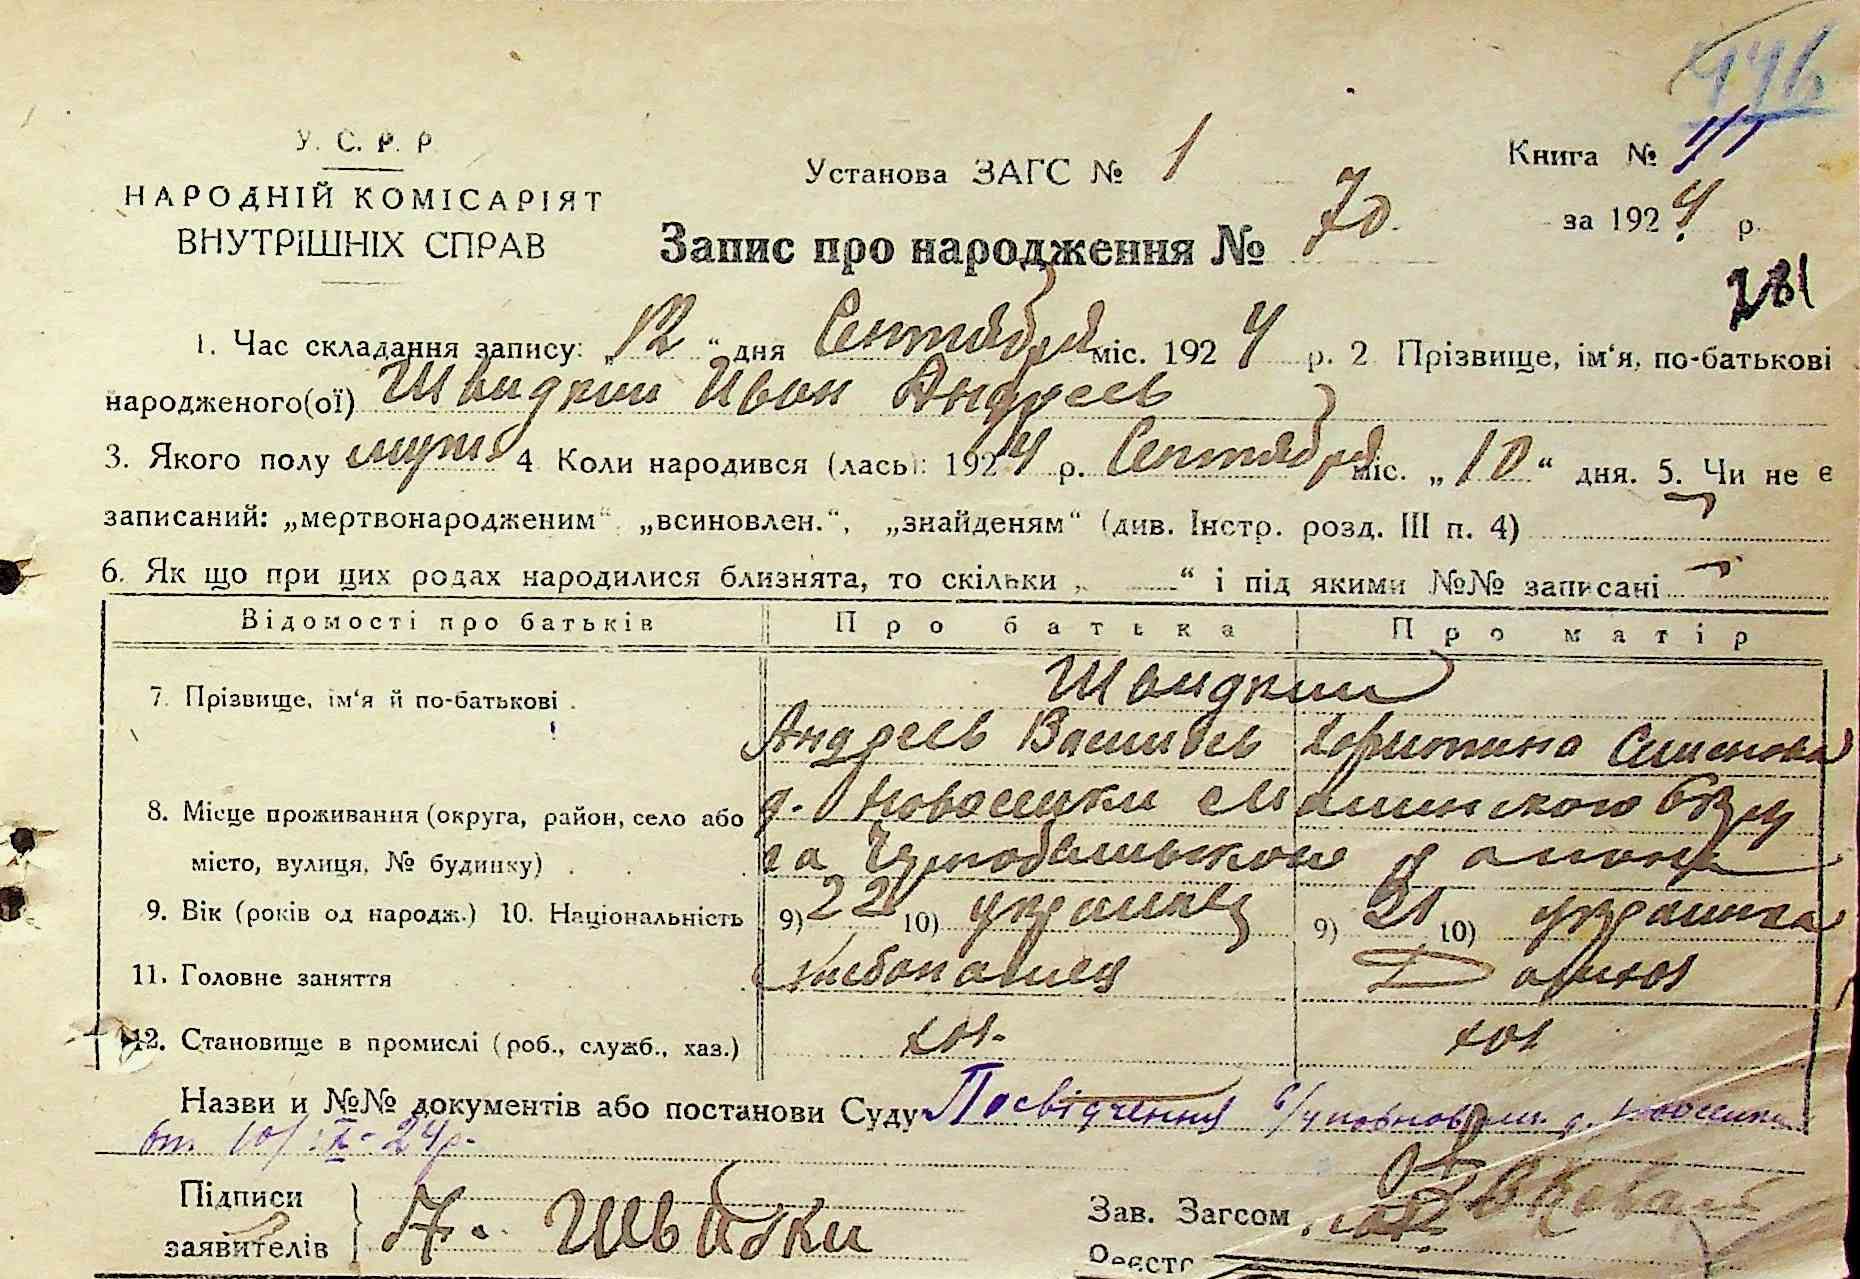 446
У. С. Р. Р.
НАРОДНІЙ КОМІСАРІЯТ
ВНУТРІШНІХ СПРАВ
Установа ЗАГС № 1
Книга №
за 1924 р.
Запис про народження № 70
281
1. Час складання запису: „12“ дня Сентября міс. 1924 р. 2 Прізвище, ім‘я, по-батькові
народженого(ої) Швидкий Иван Андреев
3. Якого полу муж 4 Коли народився (лась): 1924 р. Сентября міс. „10“ дня. 5. Чи не є
записаний: „мертвонародженим“ „всиновлен.“, „знайденям“ (див. Інстр. розд. III п. 4)
6. Як що при цих родах народилися близнята, то скільки „ — “ і під якими №№ записані
Відомості про батьків Про батька Про матір
7. Прізвище, ім‘я й по-батькові Швидкий
Андреев Васильев Харитина Семенова
8. Місце проживання (округа, район, село або д. Новоселки
місто, вулиця, № будинку)
9. Вік (років од народж.) 10. Національність 9) 22 10) украинец 9) 21 10) украинка
11. Головне заняття хлебопашец
12. Становище в промислі (роб., служб., хаз.) хоз. хоз
Назви и №№ документів або постанови Суду Посвідчення с/уповновам. д. Новоселки
от 10/IX-24р.
Підписи
заявителів А. Швидки
Зав. Загсом
Реєстр